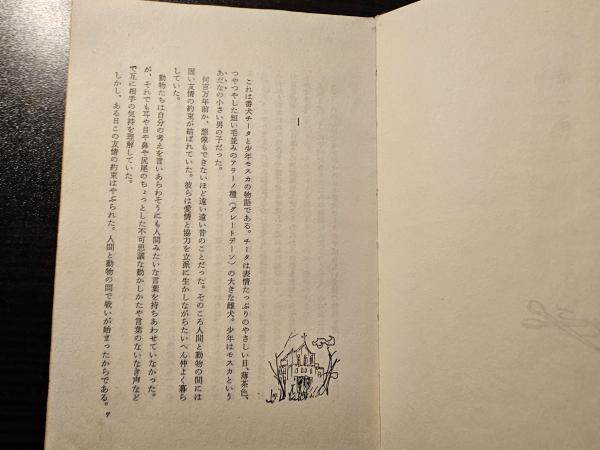 1
これは番犬チータと少年モスカの物語である。チータは表情たっぷりのやさしい目、薄茶色、
つやつやした短い毛並みのアラーノ種（グレートデーン）の大きな雌犬。少年はモスカという
あだなの小さい男の子だった。
何百万年前か、想像もできないほど遠い遠い昔のことだった。そのころ人間と動物の間には
固い友情の約束が結ばれていた。彼らは愛情と協力を立派に生かしながらたいへん仲よく暮ら
していた。
動物たちは自分の考えを言いあらわそうにも人間みたいな言葉を持ちあわせていなかった。
が、それでも耳や目や鼻や尻尾のちょっとした不可思議な動かしかたや言葉のないなき声など
で互に相手の気持を理解していた。
しかし、ある日この友情の約束はやぶられた。人間と動物の間で戦いが始まったからである。
7